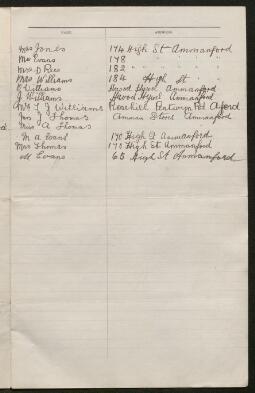 NAME ADDRESS
Mrs Jones 174 High St Ammanford
Mr Evans 178 " " "
Mrs D Rees 182 " " "
Mrs Williams 184 High St "
E Williams Hywel Ammanford
J Williams Hywel Ammanford
Mrs T J Williams Rosehill Aford
Mrs J Thomas Amman Stores Ammanford
Miss A Thomas
M A Evans 170 High St Ammanford
Mrs Thomas 170 High St Ammanford
M Evans 65 High St Ammanford